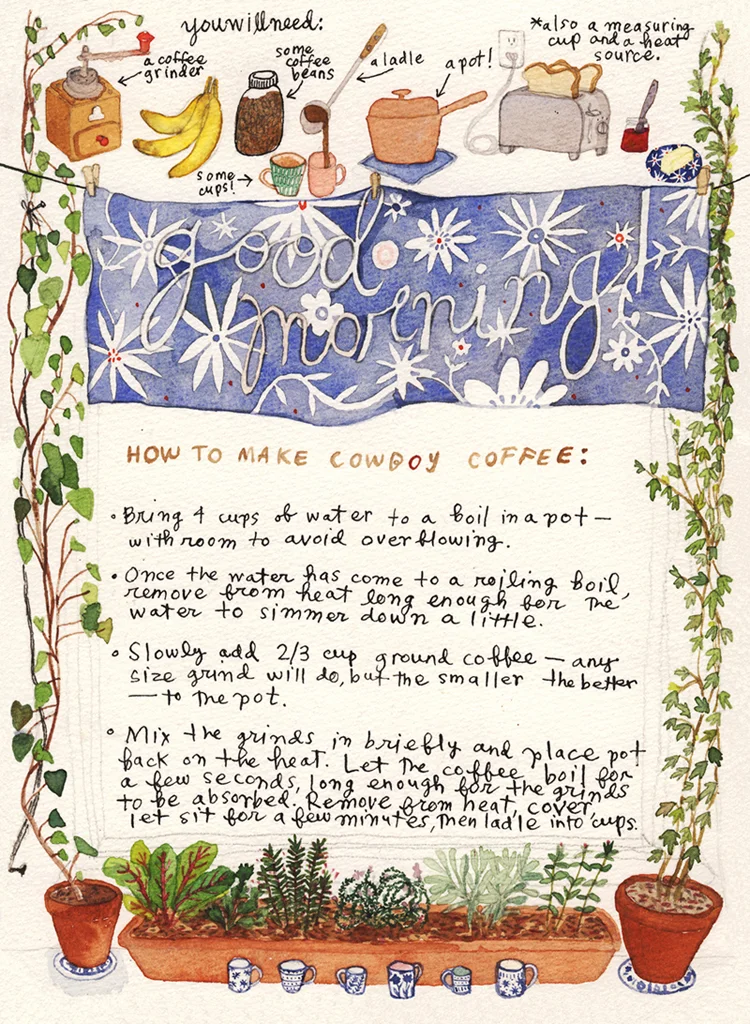 you will need:
*also a measuring
cup and a heat
source.
a coffee
grinder
some
coffee
beans
a ladle
a pot!
some
cups!
good
morning
HOW TO MAKE COWBOY COFFEE:
• Bring 4 cups of water to a boil in a pot —
with room to avoid overflowing.
• Once the water has come to a rolling boil,
remove from heat long enough for the
water to simmer down a little.
• Slowly add 2/3 cup ground coffee — any
size grind will do, but the smaller the better
— to the pot.
• Mix the grinds in briefly and place pot
back on the heat. Let the coffee boil for
a few seconds, long enough for the grinds
to be absorbed. Remove from heat, cover
let sit for a few minutes, then ladle into cups.